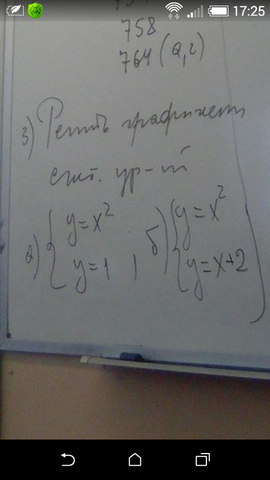 17:25
758
764 (а, г)
3) Решить графически
сист. ур-ий
а) { y=x²
y=1 ;
б) { y=x²
y=x+2